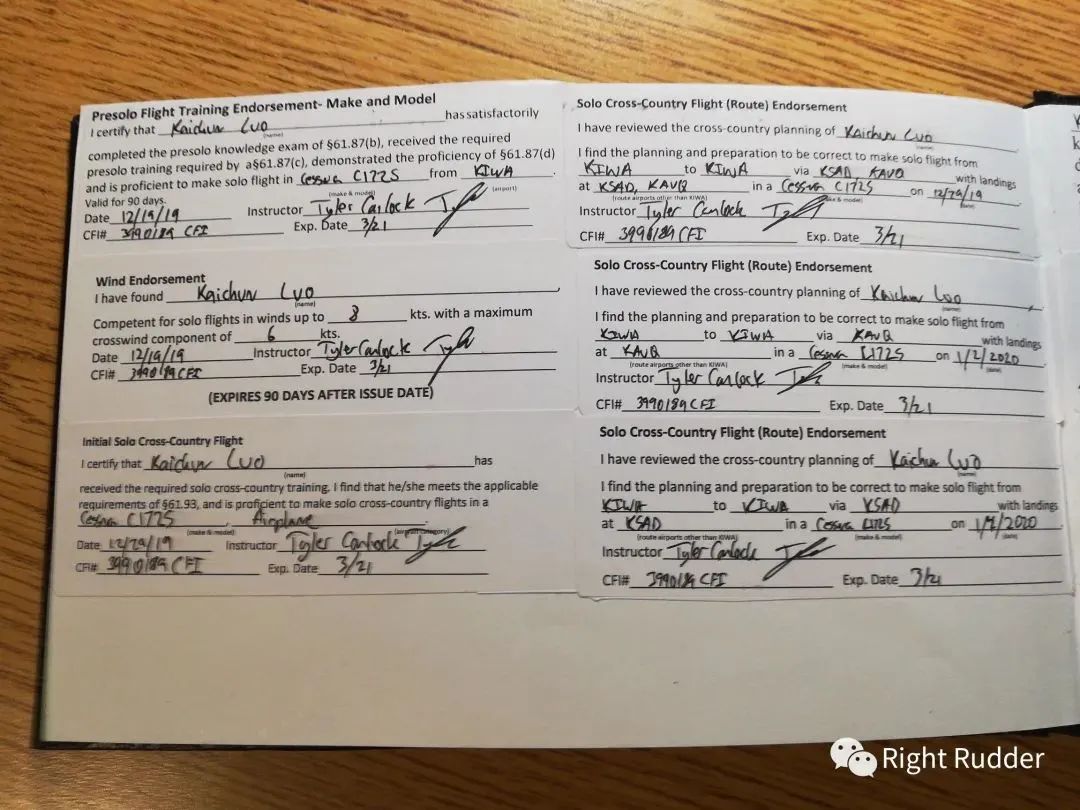 Presolo Flight Training Endorsement- Make and Model
I certify that Kaichun Luo has satisfactorily
(name)
completed the presolo knowledge exam of §61.87(b), received the required
presolo training required by a§61.87(c), demonstrated the proficiency of §61.87(d)
and is proficient to make solo flight in Cessna C172S from KIWA.
(make & model) (airport)
Valid for 90 days.
Date 12/19/19 Instructor Tyler Carlock
CFI# 3990189 CFI Exp. Date 3/21
Wind Endorsement
I have found Kaichun Luo
(name)
Competent for solo flights in winds up to 8 kts. with a maximum
crosswind component of 6 kts.
Date 12/19/19 Instructor Tyler Carlock
CFI# 3990189 CFI Exp. Date 3/21
(EXPIRES 90 DAYS AFTER ISSUE DATE)
Initial Solo Cross-Country Flight
I certify that Kaichun Luo has
(name)
received the required solo cross-country training. I find that he/she meets the applicable
requirements of §61.93, and is proficient to make solo cross-country flights in a
Cessna C172S, Airplane.
(make & model) (aircraft category)
Date 12/29/19 Instructor Tyler Carlock
CFI# 3990189 CFI Exp. Date 3/21
Solo Cross-Country Flight (Route) Endorsement
I have reviewed the cross-country planning of Kaichun Luo
(name)
I find the planning and preparation to be correct to make solo flight from
KIWA to KIWA via KSAD, KAVQ with landings
at KSAD, KAVQ in a Cessna C172S on 12/29/19
(route airports other than KIWA) (make & model) (date)
Instructor Tyler Carlock
CFI# 3990189 CFI Exp. Date 3/21
Solo Cross-Country Flight (Route) Endorsement
I have reviewed the cross-country planning of Kaichun Luo
(name)
I find the planning and preparation to be correct to make solo flight from
KIWA to KIWA via KAVQ with landings
at KAVQ in a Cessna C172S on 1/2/2020
(route airports other than KIWA) (make & model) (date)
Instructor Tyler Carlock
CFI# 3990189 CFI Exp. Date 3/21
Solo Cross-Country Flight (Route) Endorsement
I have reviewed the cross-country planning of Kaichun Luo
(name)
I find the planning and preparation to be correct to make solo flight from
KIWA to KIWA via KSAD with landings
at KSAD in a Cessna C172S on
(route airports other than KIWA) (make & model) (date)
Instructor Tyler Carlock
CFI# 3990189 CFI Exp. Date 3/21
Right Rudder